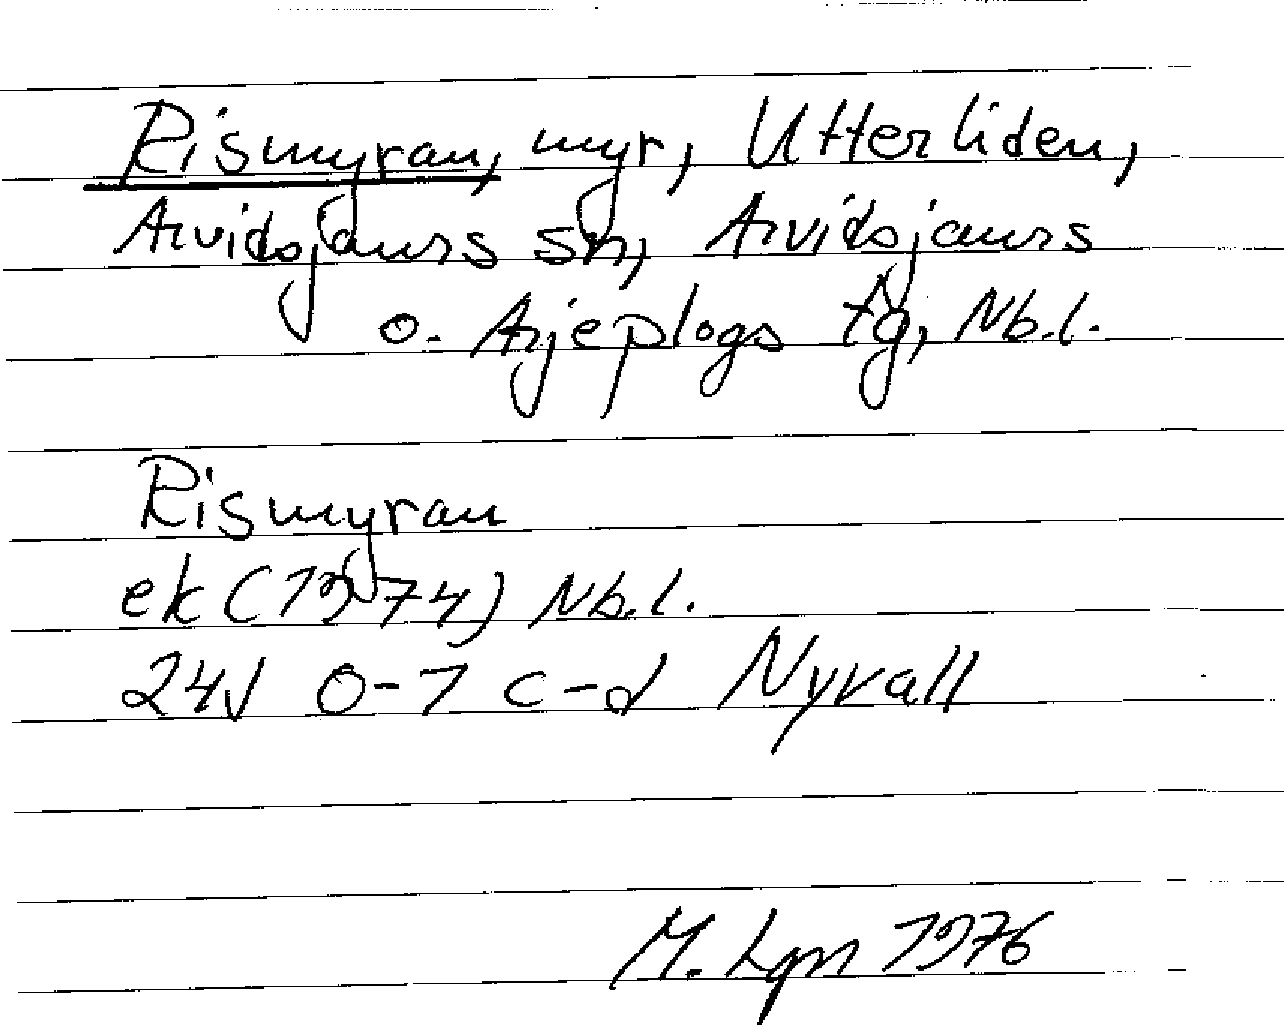 Rismyran, myr, Utterliden,
Arvidsjaurs sn, Arvidsjaurs
o. Arjeplogs tg, Nb.l.
Rismyran
ek (1974) Nb.l.
24J 0-1 c-d Nyvall
M. Lgn 1976